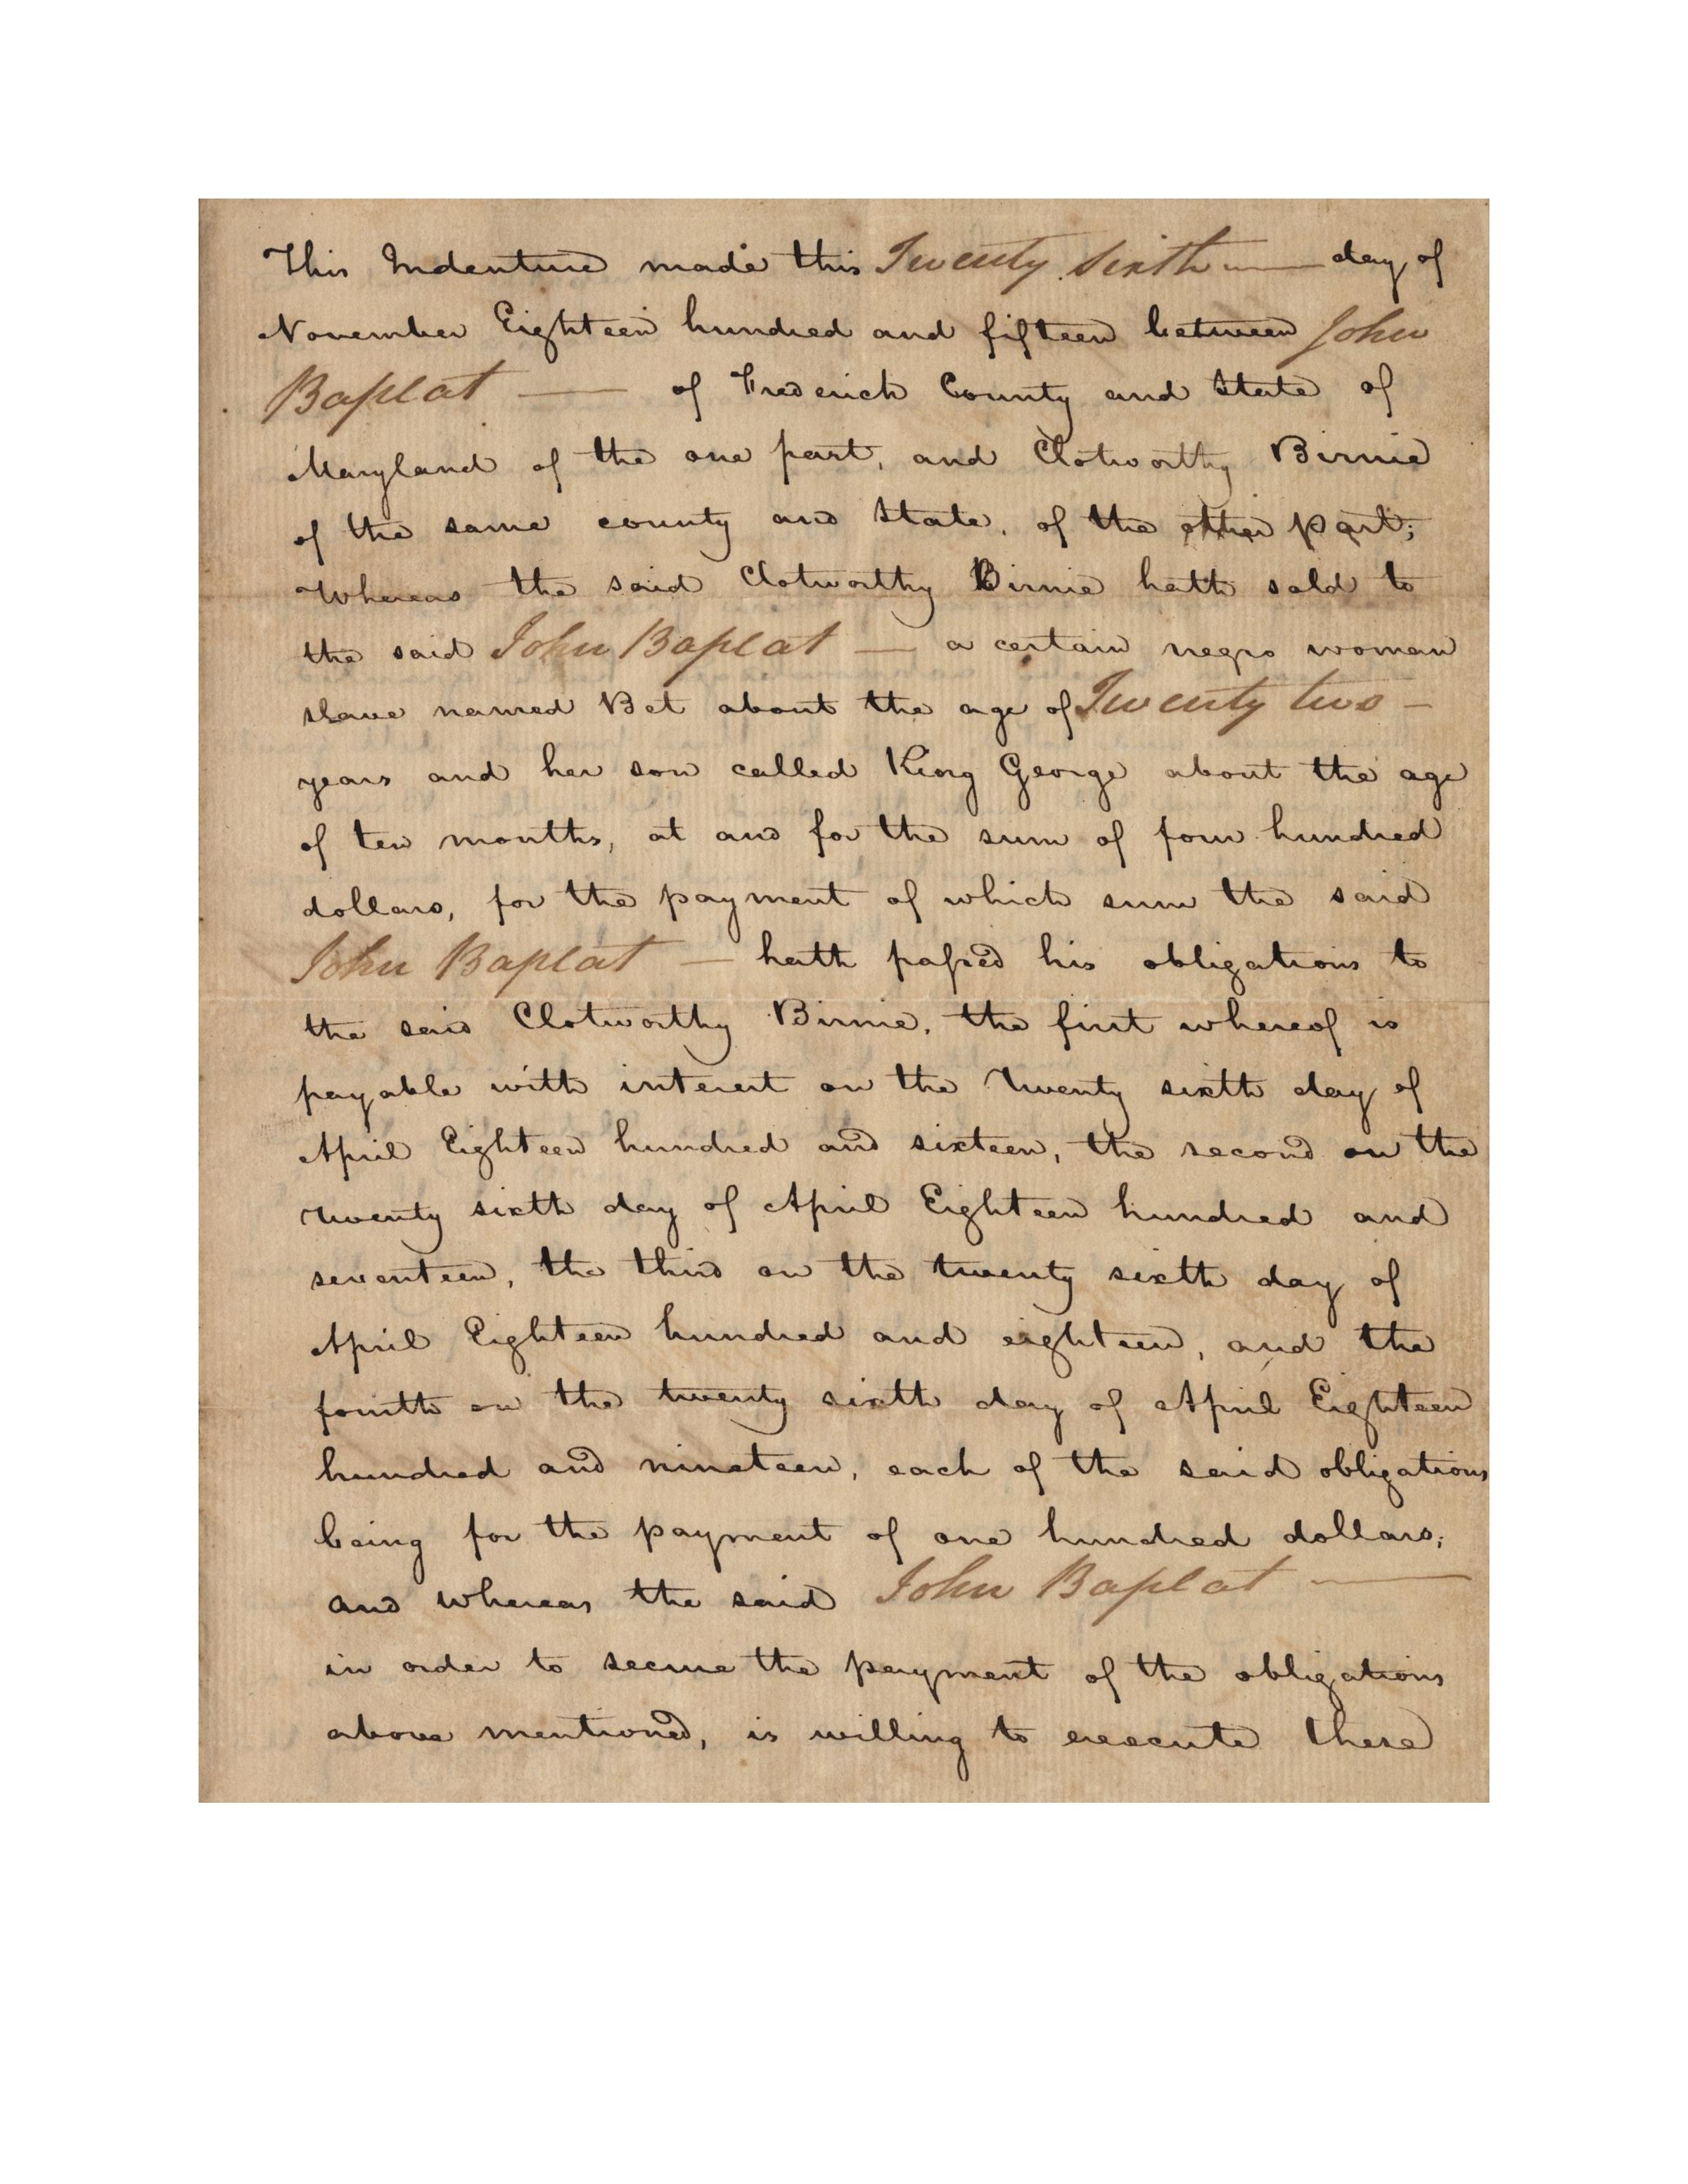 This Indenture made this Twenty Sixth — day of
November Eighteen hundred and fifteen between John
Baplat — of Frederick County and State of
Maryland of the one part, and Clotworthy Birnie
of the same county and State, of the other part;
Whereas the said Clotworthy Birnie hath sold to
the said John Baplat — a certain negro woman
slave named Bet about the age of Twenty two —
years and her son called King George about the age
of ten months, at and for the sum of four hundred
dollars, for the payment of which sum the said
John Baplat — hath paſsed his obligations to
the said Clotworthy Birnie, the first whereof is
payable with interest on the Twenty sixth day of
April Eighteen hundred and sixteen, the second on the
Twenty sixth day of April Eighteen hundred and
seventeen, the third on the twenty sixth day of
April Eighteen hundred and eighteen, and the
fourth on the twenty sixth day of April Eighteen
hundred and nineteen, each of the said obligations
being for the payment of one hundred dollars;
and whereas the said John Baplat —
in order to secure the payment of the obligations
above mentioned, is willing to execute these